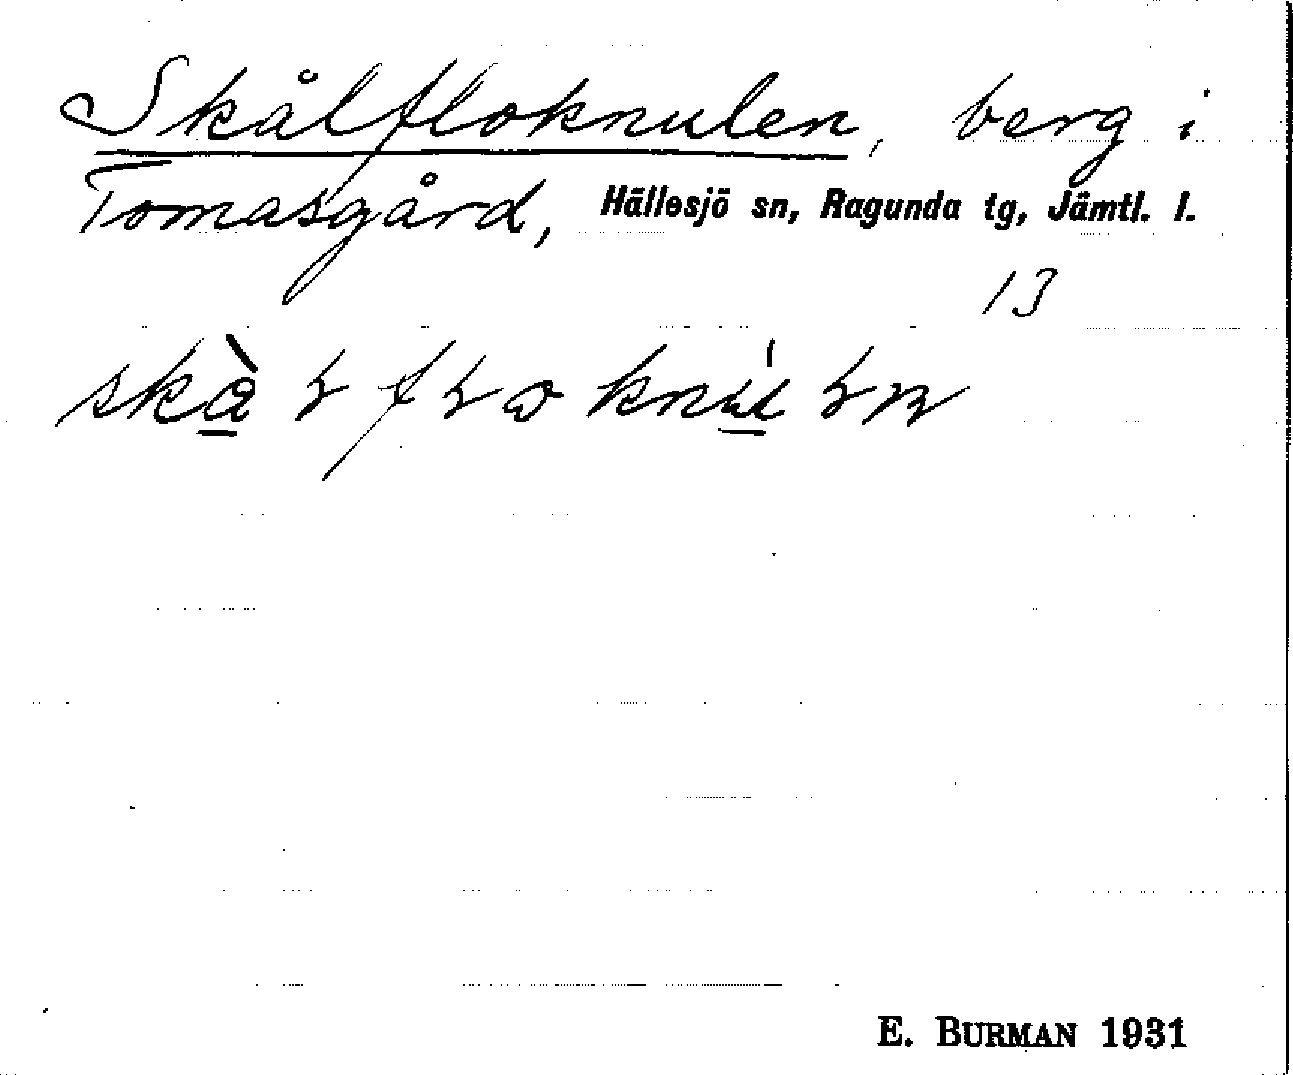 Skålfloknulen, berg i
Tomasgård, Hällesjö sn, Ragunda tg, Jämtl. l.
13
E. BURMAN 1931